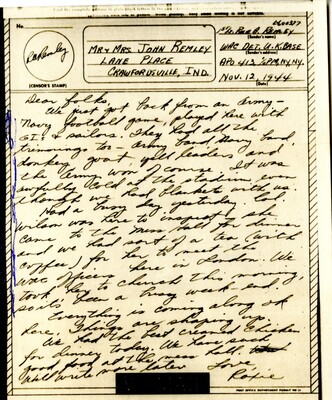 No.
(CENSOR'S STAMP)
MR & MRS. JOHN REMLEY
LANE PLACE
CRAWFORDSVILLE, IND.
(Sender's name)
WAC DET. U.K. BASE
(Sender's address)
APO 413, % P.M., N.Y., N.Y.
NOV. 12, 1944
(Date)
Dear folks,
We just got back from an Army-
Navy football game, played here with
GI's & sailors. They had all the
trimmings too - Army band, Navy band,
donkey, goat, yell leaders, and
the Army won of course. It was
awfully cold at the stadium even
though we had blankets with us.
Had a busy day yesterday. Col.
Wilson was here to inspect & she
came to the mess hall for dinner
and we had sort of a tea (with
coffee) for her to meet the
WAC officers here in London. We
took her to church this morning,
so it's been a busy week-end.
Everything is coming along ok
here. Things are shaping up.
We had the best creamed chicken
for dinner today. We have such
good food at the mess hall.
Will write more later Love
Rosie